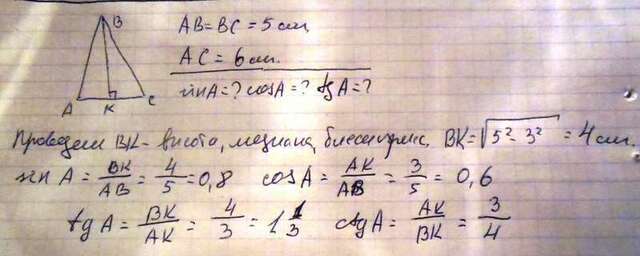 B
A K C
AB = BC = 5 см
AC = 6 см.
sin A = ? cos A = ? tg A = ?
Проведем BK - высота, медиана, биссектриса. BK = √5² - 3² = 4 см.
sin A = BK/AB = 4/5 = 0,8 cos A = AK/AB = 3/5 = 0,6
tg A = BK/AK = 4/3 = 1 1/3 ctg A = AK/BK = 3/4